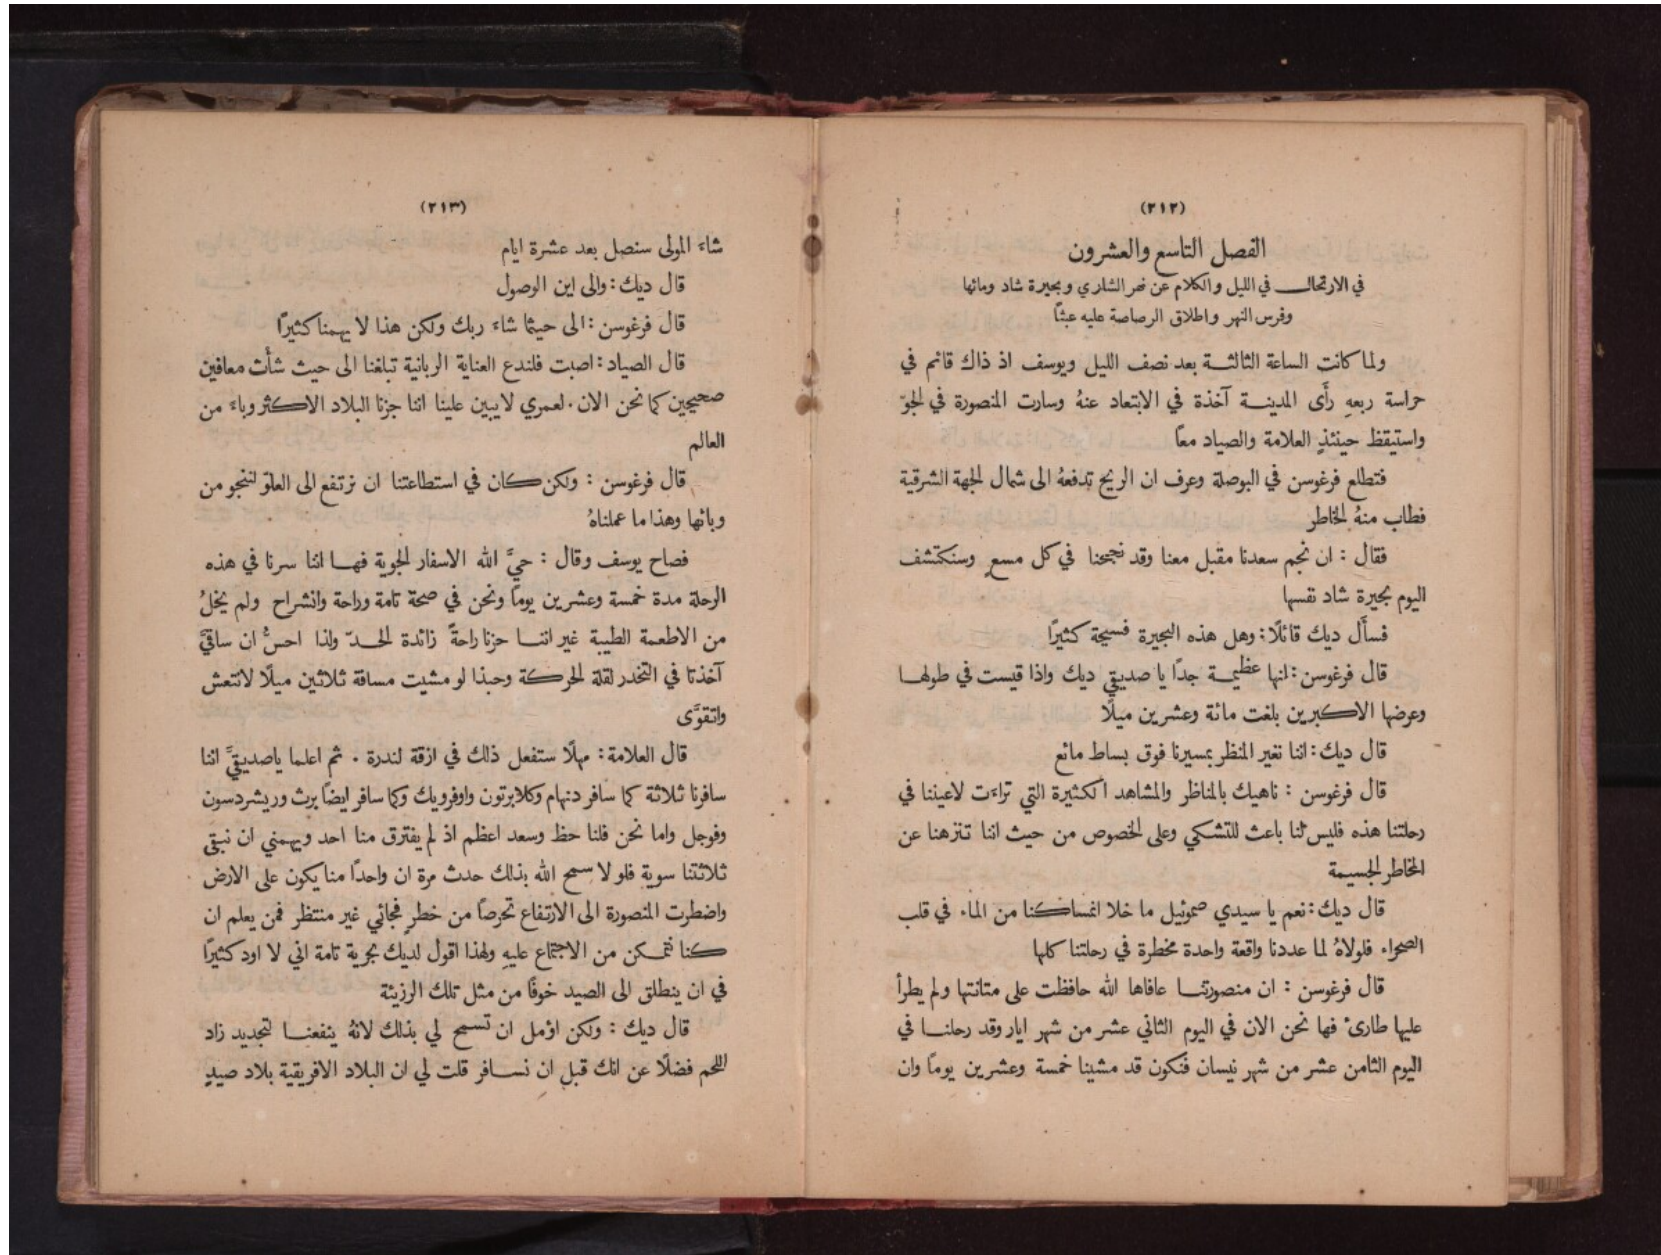 (٢١٢)
الفصل التاسع والعشرون
في الارتحال في الليل والكلام عن نهر الشاري وبحيرة شاد ومائها
وفرس النهر واطلاق الرصاصة عليه عبثًا
ولما كانت الساعة الثالثة بعد نصف الليل ويوسف اذ ذاك قائم في
حراسة ربعهِ رأَى المدينة آخذة في الابتعاد عنهُ وسارت المنصورة في الجوّ
واستيقظ حينئذٍ العلامة والصياد معًا
فتطلع فرغوسن في البوصلة وعرف ان الريح تدفعهُ الى شمال الجهة الشرقية
فطاب منهُ الخاطر
فقال : ان نجم سعدنا مقبل معنا وقد نجحنا في كل مسعٍ وسنكتشف
اليوم بحيرة شاد نفسها
فسأَل ديك قائلًا: وهل هذه البحيرة فسيحة كثيرًا
قال فرغوسن: انها عظيمة جدًا يا صديقي ديك واذا قيست في طولها
وعرضها الاكبرين بلغت مائة وعشرين ميلًا
قال ديك: اننا نغير المنظر بمسيرنا فوق بساط مائع
قال فرغوسن : ناهيك بالمناظر والمشاهد الكثيرة التي تراءت لاعيننا في
رحلتنا هذه فليس لنا باعث للتشكي وعلى الخصوص من حيث اننا تنزهنا عن
المخاطر الجسيمة
قال ديك: نعم يا سيدي صموئيل ما خلا انمساكنا من الماء في قلب
الصحراء فلولاهُ لما عددنا واقعة واحدة مخطرة في رحلتنا كلها
قال فرغوسن : ان منصورتنا عافاها الله حافظت على متانتها ولم يطرأ
عليها طارئ فها نحن الان في اليوم الثاني عشر من شهر ايار وقد رحلنا في
اليوم الثامن عشر من شهر نيسان فنكون قد مشينا خمسة وعشرين يومًا وان
(٢١٣)
شاء المولى سنصل بعد عشرة ايام
قال ديك: والى اين الوصول
قال فرغوسن: الى حيثما شاء ربك ولكن هذا لا يهمنا كثيرًا
قال الصياد: اصبت فلندع العناية الربانية تبلغنا الى حيث شأَت معافين
صحيحين كما نحن الان. لعمري لا يبين علينا اننا جزنا البلاد الاكثر وباءً من
العالم
قال فرغوسن : ولكن كان في استطاعتنا ان نرتفع الى العلوّ لننجو من
وبائها وهذا ما عملناهُ
فصاح يوسف وقال : حيَّ الله الاسفار الجوية فها اننا سرنا في هذه
الرحلة مدة خمسة وعشرين يومًا ونحن في صحة تامة وراحة وانشراح ولم يخلُ
من الاطعمة الطيبة غير اننا حزنا راحةً زائدة الحدّ ولذا احسُّ ان ساقيَّ
آخذتا في التخدر لقلة الحركة وحبذا لو مشيت مسافة ثلاثين ميلًا لانتعش
واتقوَّى
قال العلامة: مهلًا ستفعل ذلك في ازقة لندرة . ثم اعلما ياصديقيَّ اننا
سافرنا ثلاثة كما سافر دنهام وكلابرتون واوفرويك وكما سافر ايضًا برث وريشردسون
وفوجل واما نحن فلنا حظ وسعد اعظم اذ لم يفترق منا احد ويهمني ان نبقى
ثلاثتنا سوية فلو لا سمح الله بذلك حدث مرة ان واحدًا منا يكون على الارض
واضطرت المنصورة الى الارتفاع تحرصًا من خطرٍ فجائي غير منتظر فمن يعلم ان
كنا نتمكن من الاجتماع عليهِ ولهذا اقول لديك بحرية تامة اني لا اود كثيرًا
في ان ينطلق الى الصيد خوفًا من مثل تلك الرزيئة
قال ديك : ولكن اؤمل ان تسمح لي بذلك لانهُ ينفعنا لتجديد زاد
اللحم فضلًا عن انك قبل ان نسافر قلت لي ان البلاد الافريقية بلاد صيدٍ